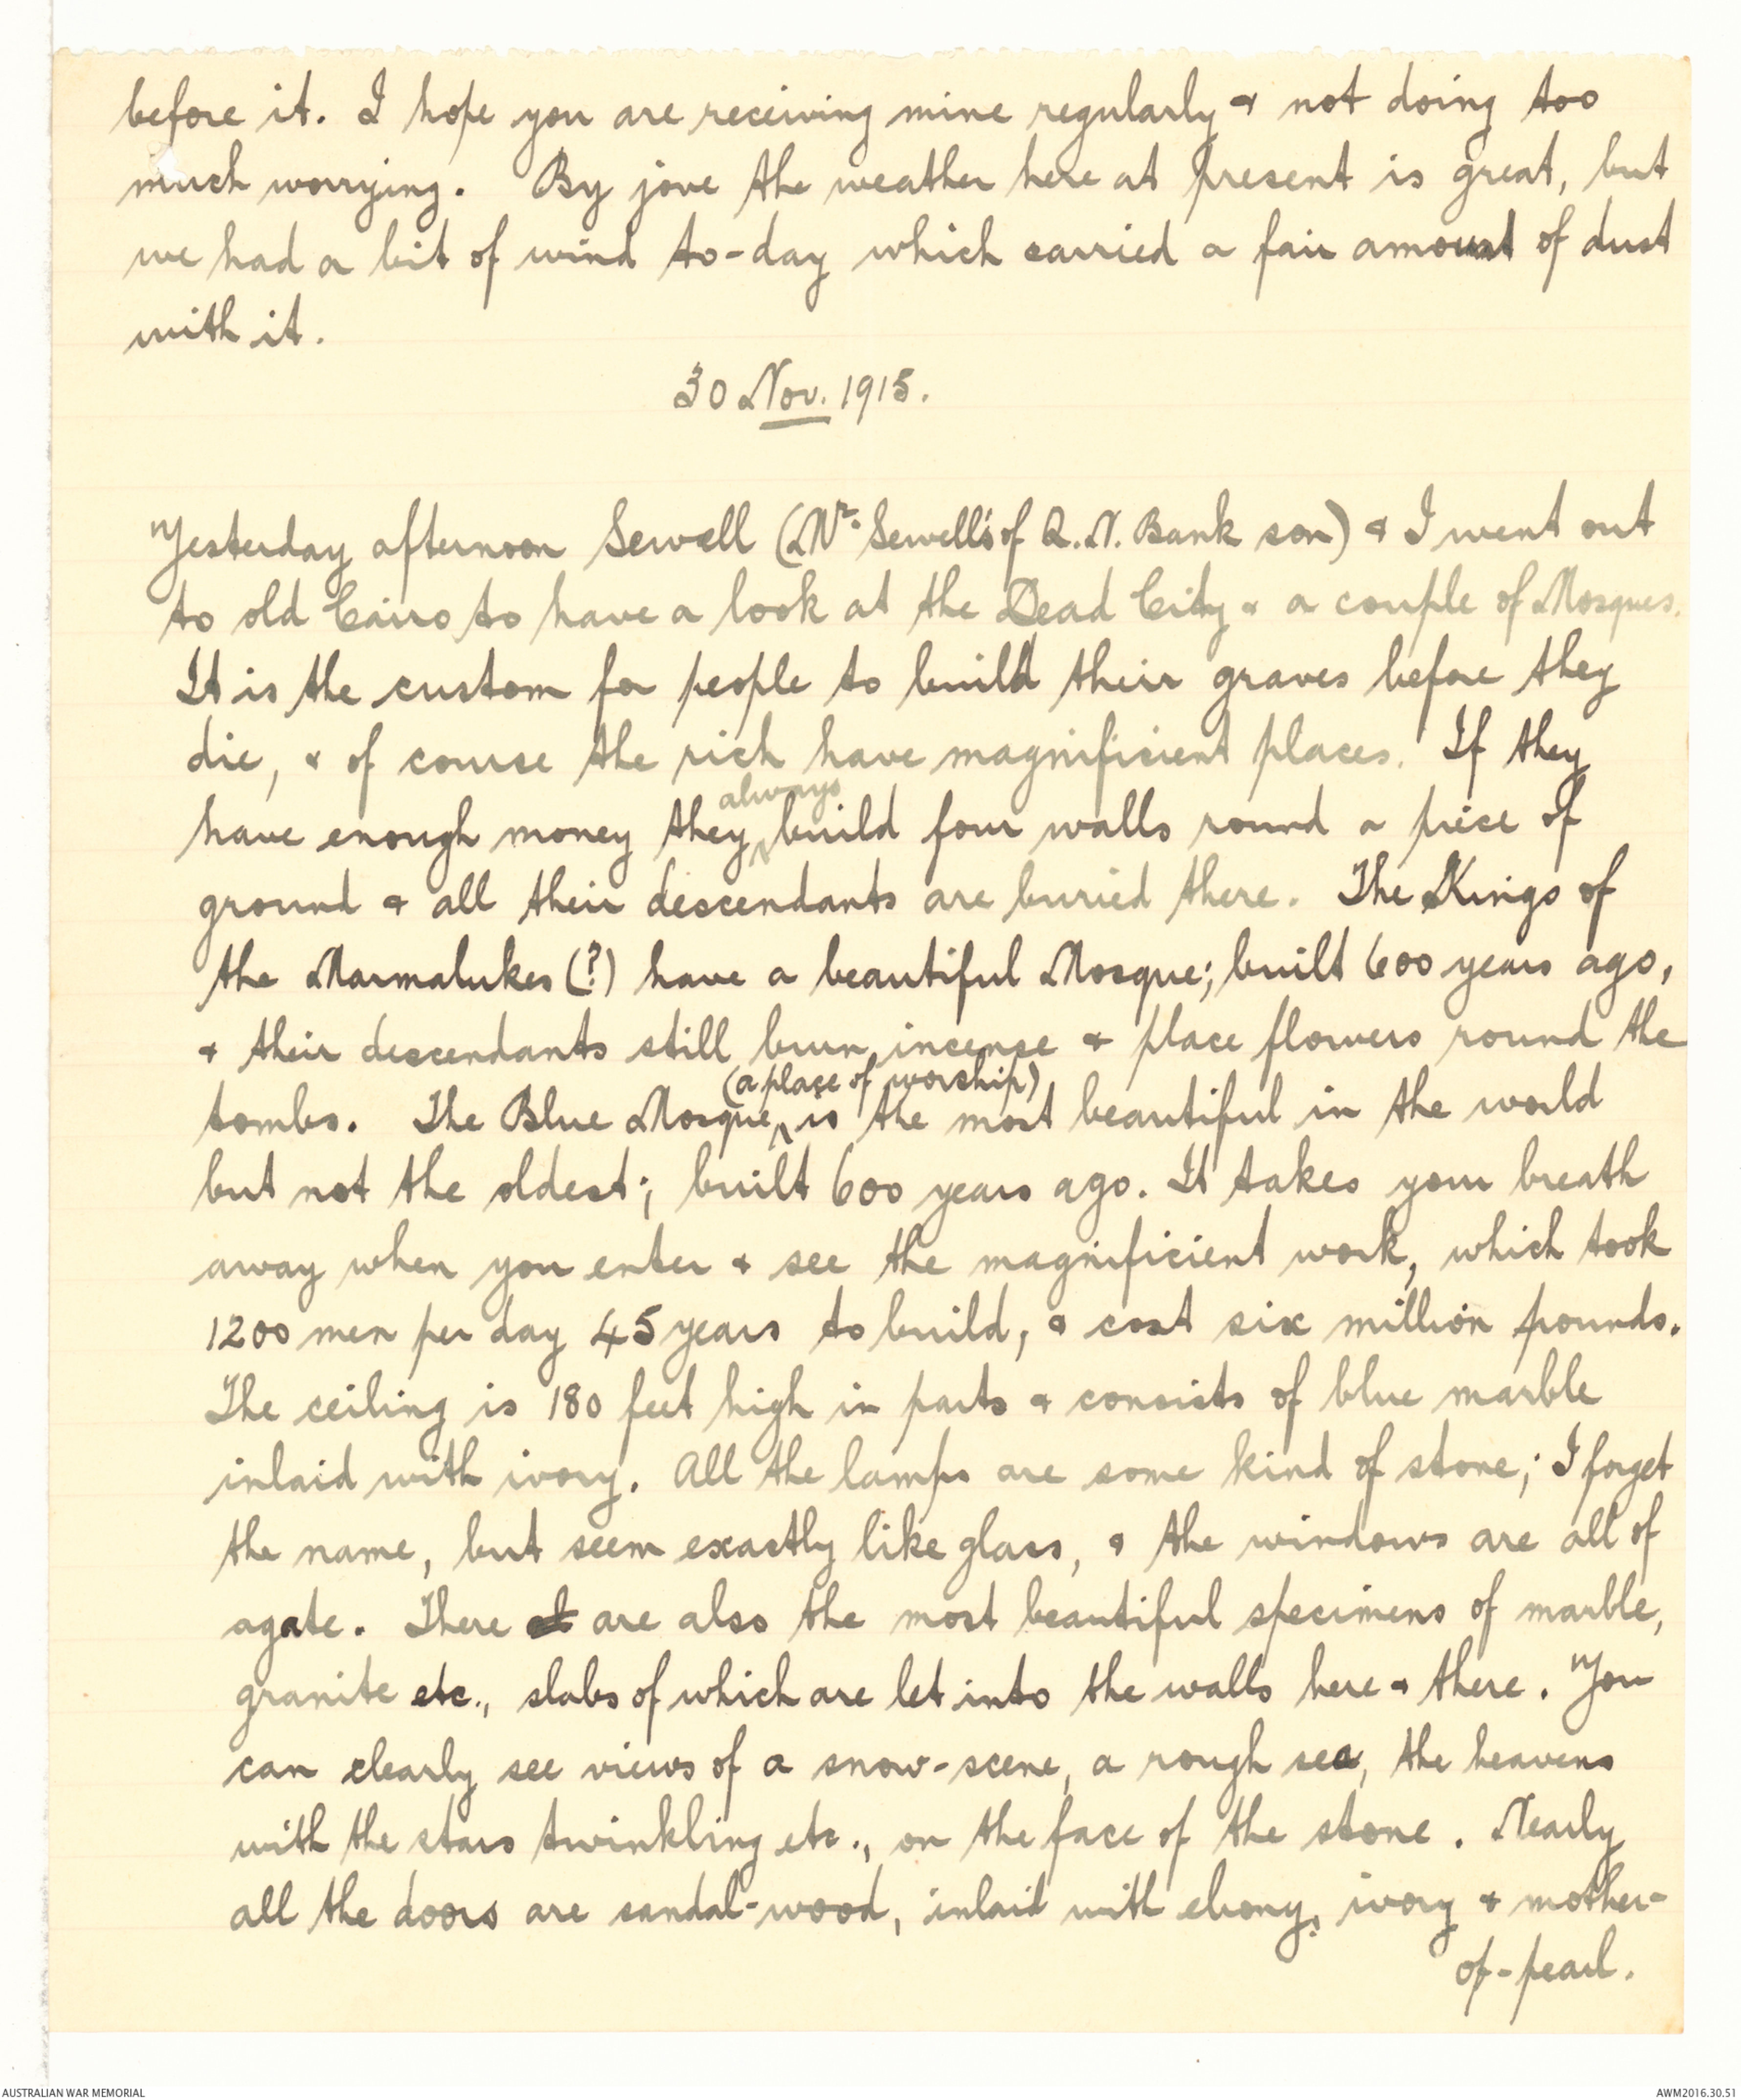 before it. I hope you are receiving mine regularly & not doing too
much worrying. By jove the weather here at present is great, but
we had a bit of wind to-day which carried a fair amount of dust
with it.
30 Nov. 1915.
Yesterday afternoon Sewell (Mr. Sewell's of Q.N. Bank son) & I went out
to old Cairo to have a look at the Dead City & a couple of Mosques.
It is the custom for people to build their graves before they
die, & of course the rich have magnificient places. If they
always
have enough money they build four walls round a piece of
ground & all their descendants are buried there. The Kings of
the Marmalukes (?) have a beautiful Mosque; built 600 years ago,
& their descendants still burn incense & place flowers round the
(a place of worship)
tombs. The Blue Mosque, is the most beautiful in the world
but not the oldest; built 600 years ago. It takes your breath
away when you enter & see the magnificient work, which took
1200 men per day 45 years to build, & cost six million pounds.
The ceiling is 180 feet high in parts & consists of blue marble
inlaid with ivory. All the lamps are some kind of stone; I forget
the name, but seem exactly like glass, & the windows are all of
agate. There are also the most beautiful specimens of marble,
granite etc., slabs of which are let into the walls here & there. You
can clearly see views of a snow-scene, a rough sea, the heavens
with the stars twinkling etc., on the face of the stone. Nearly
all the doors are sandal-wood, inlaid with ebony, ivory & mother-
of-pearl.
AUSTRALIAN WAR MEMORIAL
AWM2016.30.51